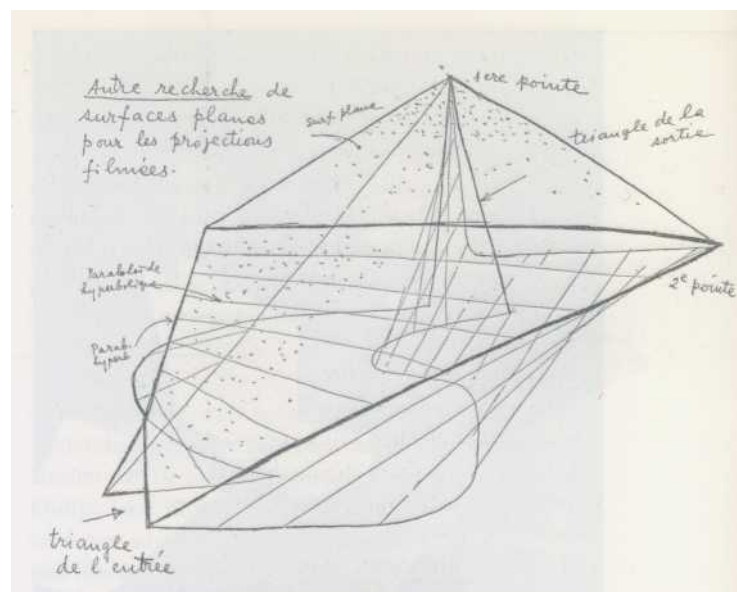 Autre recherche de
surfaces planes
pour les projections
filmées.
1ere pointe
surf plane
triangle de la
sortie
Paraboloïde
hyperbolique
2e pointe
Parab.
hyperb
triangle
de l'entrée